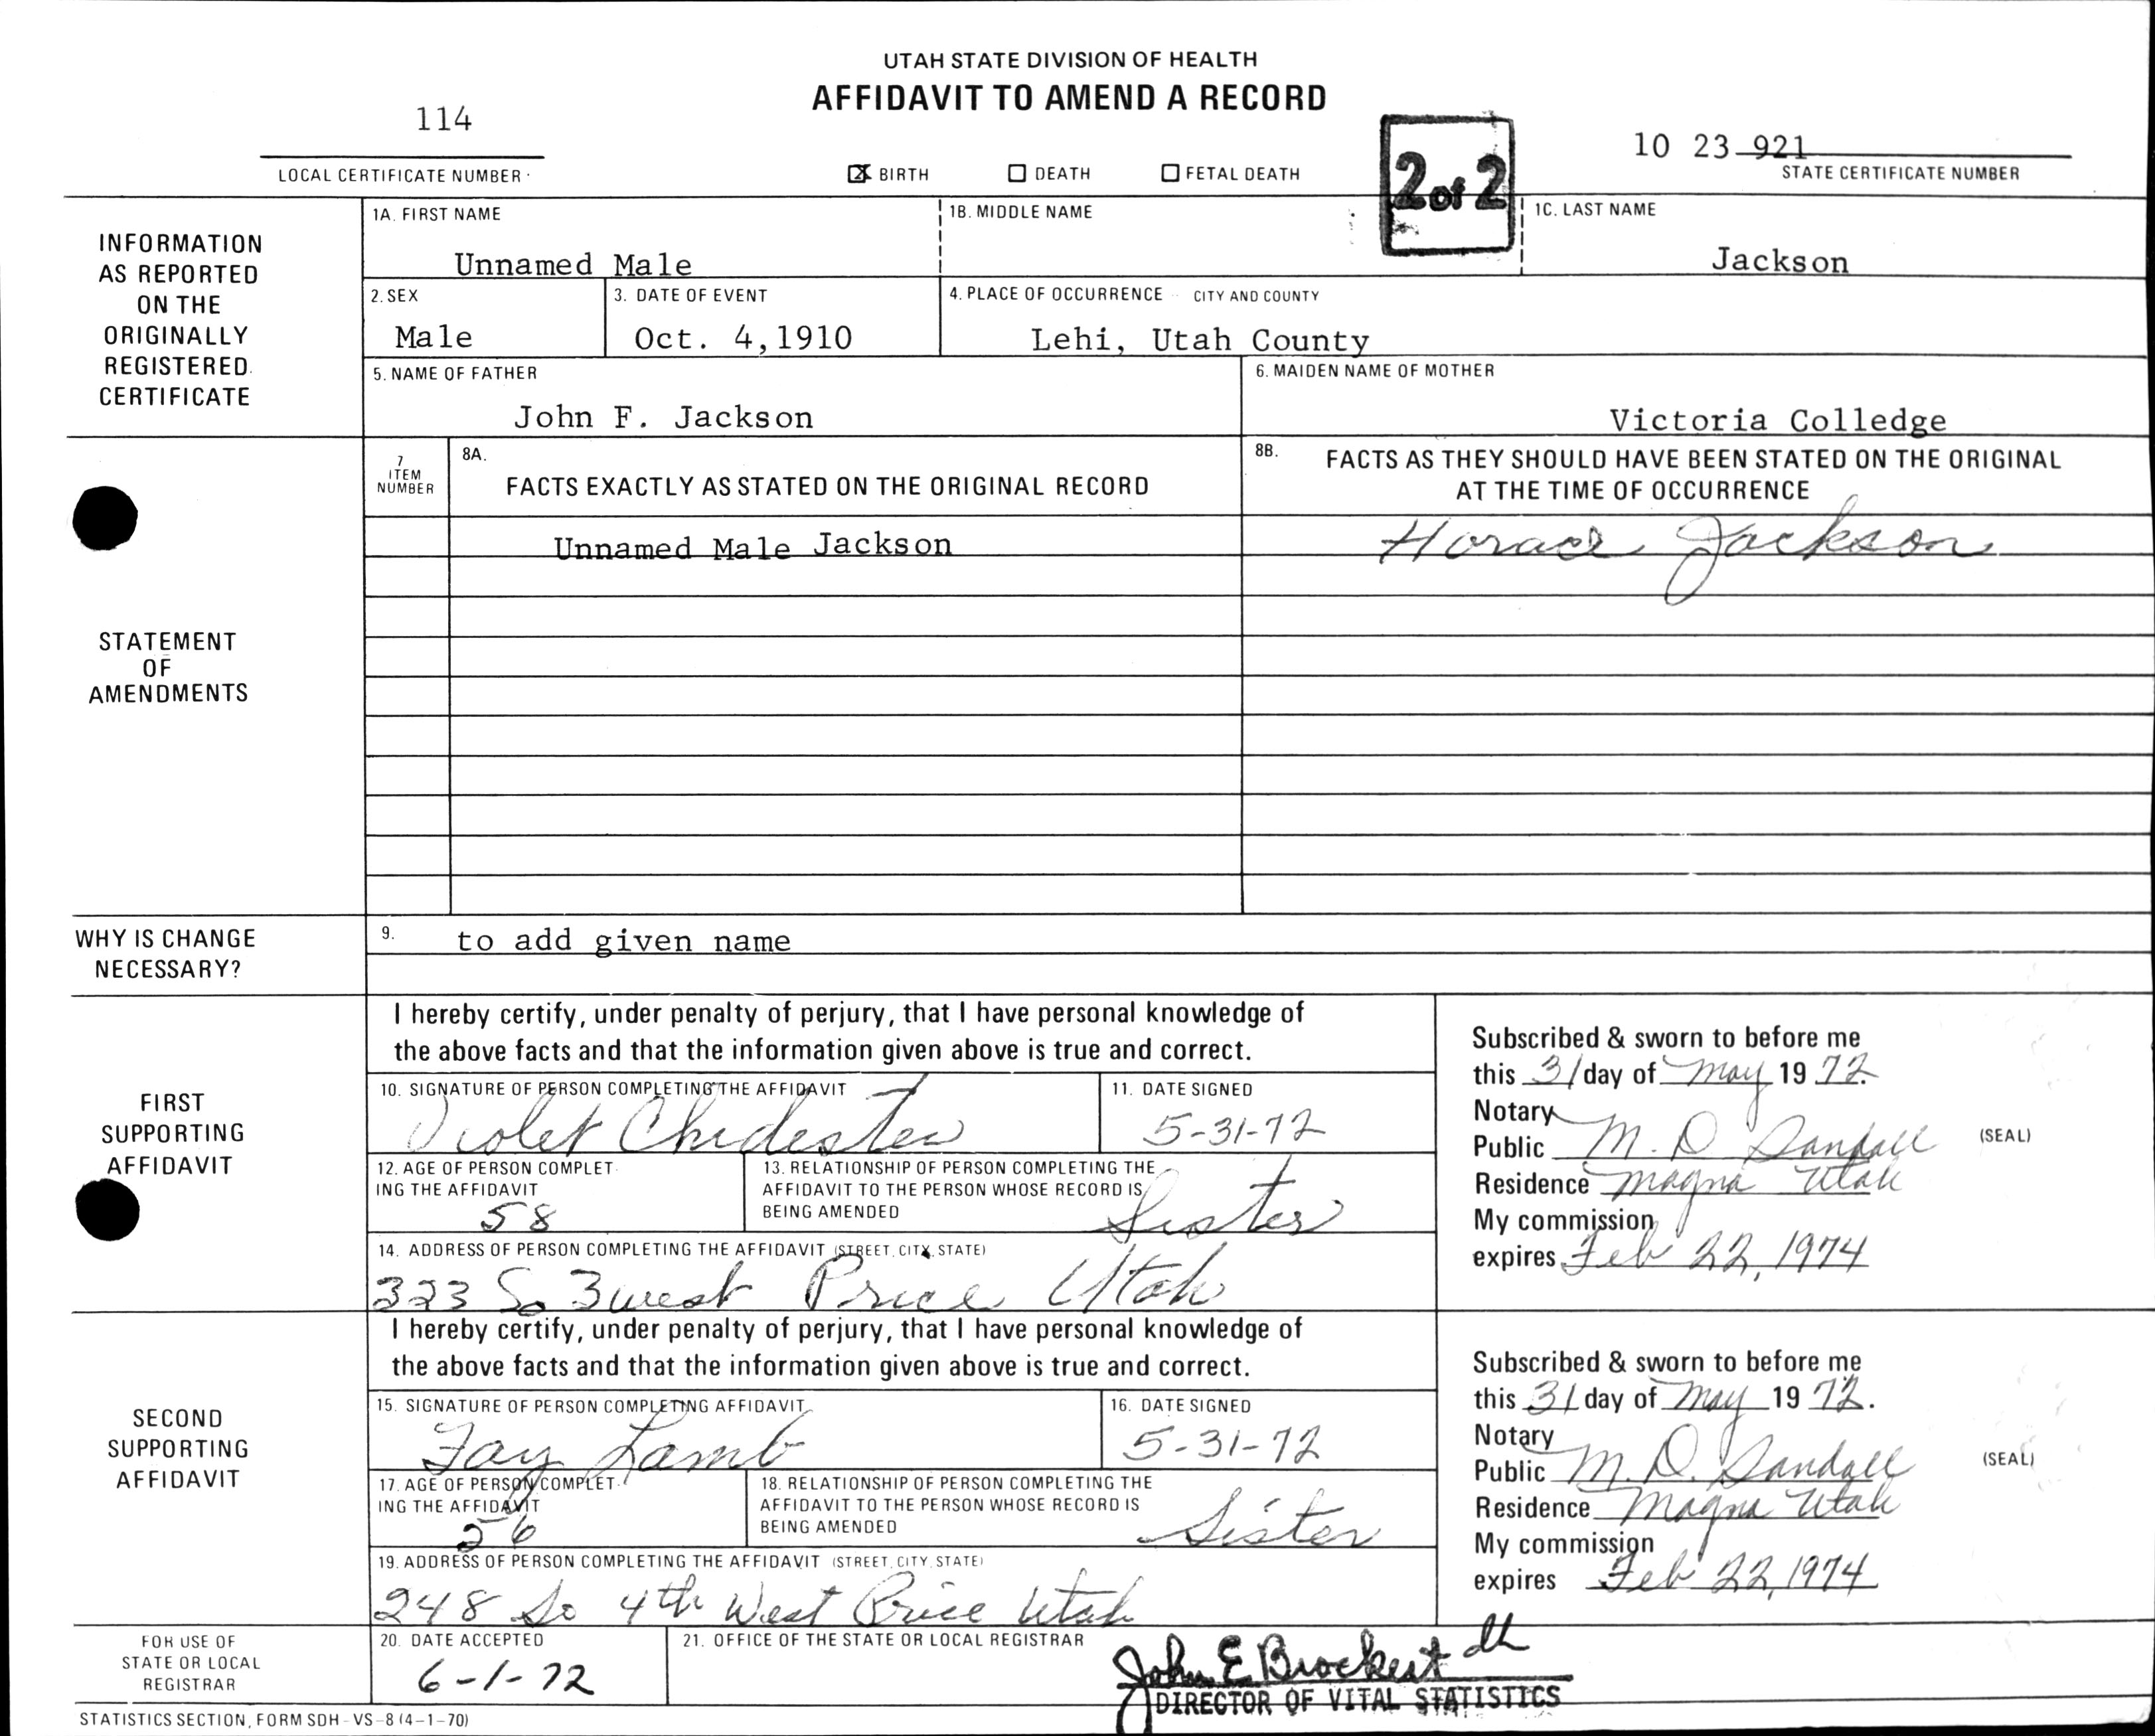 UTAH STATE DIVISION OF HEALTH
AFFIDAVIT TO AMEND A RECORD
114
10 23 921
2 of 2
LOCAL CERTIFICATE NUMBER
☒ BIRTH ☐ DEATH ☐ FETAL DEATH
STATE CERTIFICATE NUMBER
INFORMATION
AS REPORTED
ON THE
ORIGINALLY
REGISTERED
CERTIFICATE
1A. FIRST NAME
Unnamed Male
1B. MIDDLE NAME
1C. LAST NAME
Jackson
2. SEX
Male
3. DATE OF EVENT
Oct. 4,1910
4. PLACE OF OCCURRENCE CITY AND COUNTY
Lehi, Utah County
5. NAME OF FATHER
John F. Jackson
6. MAIDEN NAME OF MOTHER
Victoria Colledge
STATEMENT
OF
AMENDMENTS
7
ITEM
NUMBER
8A.
FACTS EXACTLY AS STATED ON THE ORIGINAL RECORD
8B. FACTS AS THEY SHOULD HAVE BEEN STATED ON THE ORIGINAL
AT THE TIME OF OCCURRENCE
Unnamed Male Jackson
Horace Jackson
WHY IS CHANGE
NECESSARY?
9. to add given name
FIRST
SUPPORTING
AFFIDAVIT
I hereby certify, under penalty of perjury, that I have personal knowledge of
the above facts and that the information given above is true and correct.
10. SIGNATURE OF PERSON COMPLETING THE AFFIDAVIT
Violet Chidester
11. DATE SIGNED
5-31-72
12. AGE OF PERSON COMPLET
ING THE AFFIDAVIT
58
13. RELATIONSHIP OF PERSON COMPLETING THE
AFFIDAVIT TO THE PERSON WHOSE RECORD IS
BEING AMENDED
Sister
14. ADDRESS OF PERSON COMPLETING THE AFFIDAVIT (STREET, CITY, STATE)
323 So 3 west Price Utah
Subscribed & sworn to before me
this 31 day of May 19 72.
Notary
Public M. D. Sandall (SEAL)
Residence Magna Utah
My commission
expires Feb 22, 1974
SECOND
SUPPORTING
AFFIDAVIT
I hereby certify, under penalty of perjury, that I have personal knowledge of
the above facts and that the information given above is true and correct.
15. SIGNATURE OF PERSON COMPLETING AFFIDAVIT
Fay Lamb
16. DATE SIGNED
5-31-72
17. AGE OF PERSON COMPLET
ING THE AFFIDAVIT
56
18. RELATIONSHIP OF PERSON COMPLETING THE
AFFIDAVIT TO THE PERSON WHOSE RECORD IS
BEING AMENDED
Sister
19. ADDRESS OF PERSON COMPLETING THE AFFIDAVIT (STREET, CITY, STATE)
248 So 4th West Price Utah
Subscribed & sworn to before me
this 31 day of May 19 72.
Notary
Public M. D. Sandall (SEAL)
Residence Magna Utah
My commission
expires Feb 22, 1974
FOR USE OF
STATE OR LOCAL
REGISTRAR
20. DATE ACCEPTED
6-1-72
21. OFFICE OF THE STATE OR LOCAL REGISTRAR
John E Brockert dh
DIRECTOR OF VITAL STATISTICS
STATISTICS SECTION, FORM SDH-VS-8 (4-1-70)